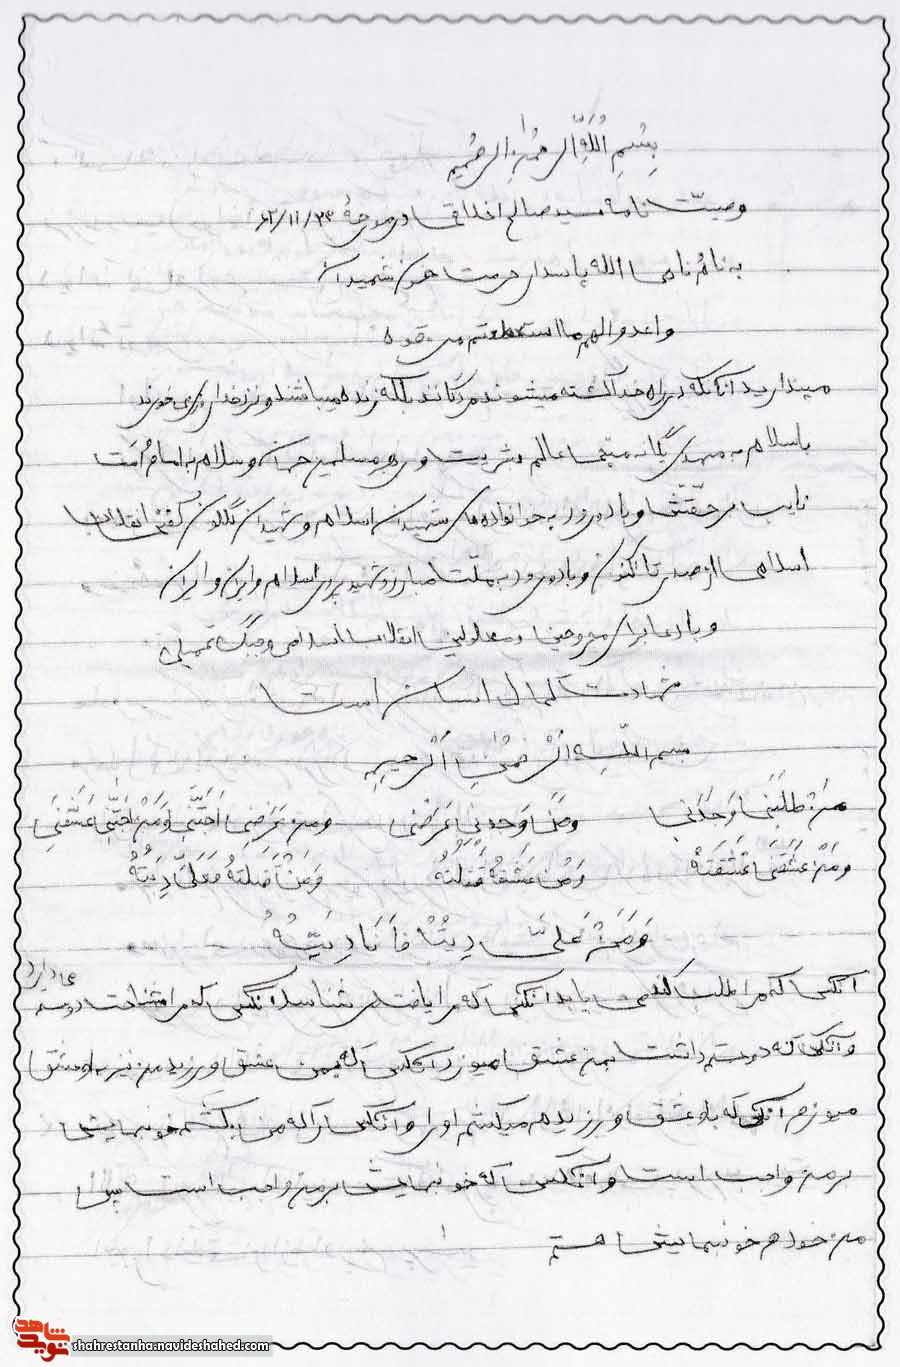 بِسْمِ اللهِ الرحمنِ الرحیم
وصیّت نامه سید صالح اخلاقی در مورخهٔ ۶۲/۱۱/۲۴
به نام نامی الله پاسدار حرمت خون شهیدان
واعدوالهم ما استطعتم من قوه
مپندارید آنانکه در راه خدا کشته میشوند مردگانند بلکه زنده میباشند و نزد خدا روزی خورند
باسلام به مهدی یگانه منجی عالم بشریت و رهبر مسلمین جهان و سلام به امام امّت
نایب بر حقّش و با درود به خانواده های شهیدان اسلام و شهیدان گلگون کفن انقلاب
اسلامی از صدر تا کنون و با درود به ملّت مبارز و شهید پرور اسلام و ایران
و با دعا برای مجروحین و معلولین انقلاب اسلامی و جنگ تحمیلی
شهادت کمال انسان است
بسم اللّه الْرحمنِ اَلْرحیم
مَنْ طَلَبَنی وَجَدَنی وَمَنْ وَجَدنی عَرَفَنی ومن عَرَفَنی اَحَبَّنی وَمَنْ اَحَبَّنی عَشَقَنی
وَمَنْ عَشَقَنی عَشَقْتَهُ وَمَنْ عَشَقْتُهُ قَتَلْتُهُ وَمَنْ قَتَلتهُ فَعَلَیَّ دِیَتُهُ
وَمَنْ عَلیَّ دِیَتُهُ فَاَنَا دِیَتُهُ
آنکس که مرا طلب کند می یابد آنکس که مرا یافت می شناسد آنکس که مرا شناخت دوستم می دارد
و آنکس که دوستم داشت بمن عشق میورزد آنکس که بمن عشق ورزید من نیز به او عشق
میورزم آنکس که به او عشق ورزیدم میکشم او را و آنکس را که من بکشم خونبهایش
بر من واجب است و آنکس که خونبهایش بر من واجب است پس
من خودم خونبهایش هستم
شاهد
نوید
shahrestanha.navideshahed.com